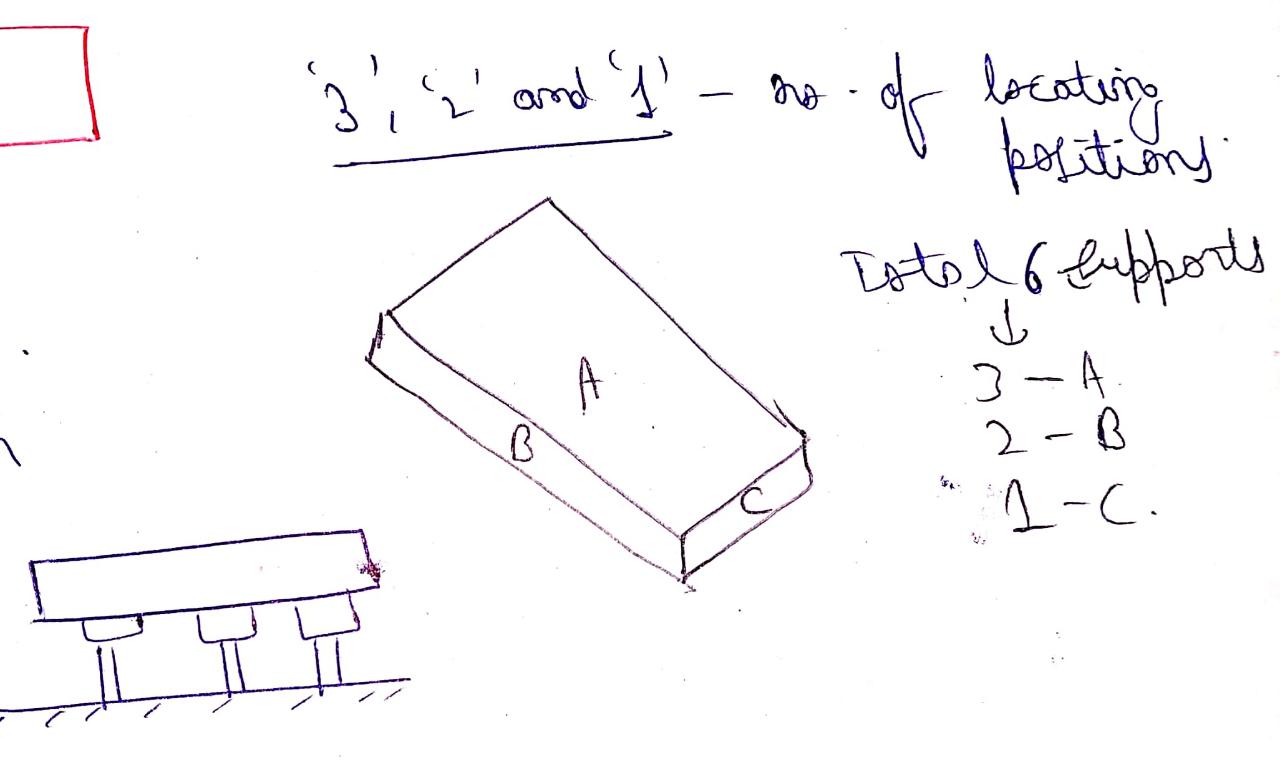 '3', '2' and '1' – no. of locating
positions.
Total 6 supports
↓
3 – A.
2 – B
1 – C.
A
B
C